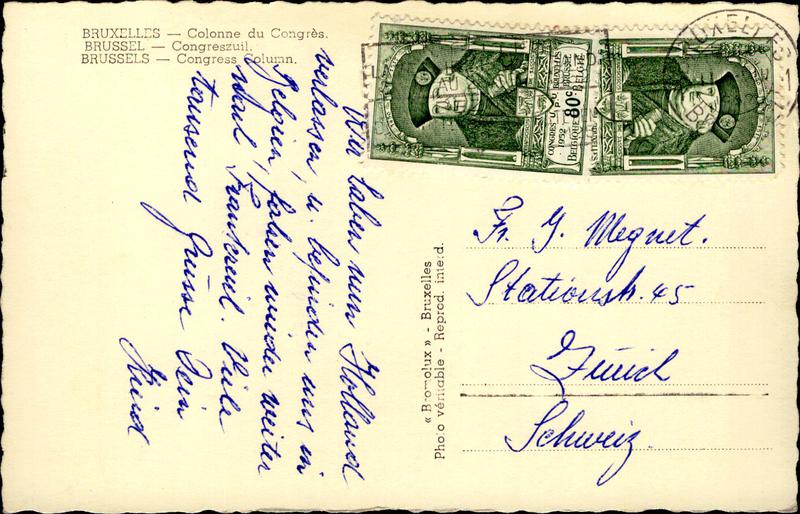 BRUXELLES — Colonne du Congrès.
BRUSSEL — Congreszuil.
BRUSSELS — Congress Column.
Wir haben nun Holland
verlassen, u. befinden uns in
Belgien, fahren wieder weiter
nach Frankreich. Viele
tausend Grüsse Dein
Fr. J. Megnet.
Stationsstr. 45
Zürich
Schweiz.
« Bromolux » - Bruxelles
Photo véritable - Reprod. interd.
CONGRES U.P.
1952
BELGIQUE
80c
BELGIE